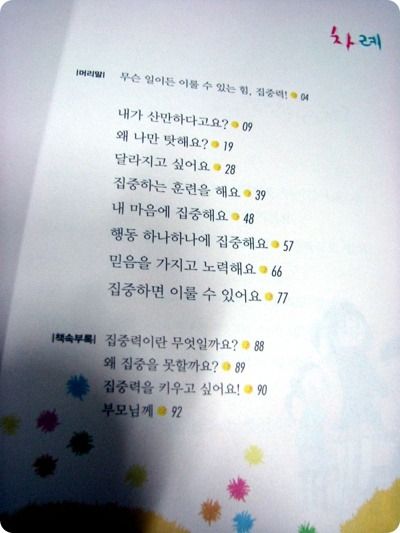 차례
|머리말| 무슨 일이든 이룰 수 있는 힘, 집중력! 04
내가 산만하다고요? 09
왜 나만 탓해요? 19
달라지고 싶어요 28
집중하는 훈련을 해요 39
내 마음에 집중해요 48
행동 하나하나에 집중해요 57
믿음을 가지고 노력해요 66
집중하면 이룰 수 있어요 77
|책속부록| 집중력이란 무엇일까요? 88
왜 집중을 못할까요? 89
집중력을 키우고 싶어요! 90
부모님께 92